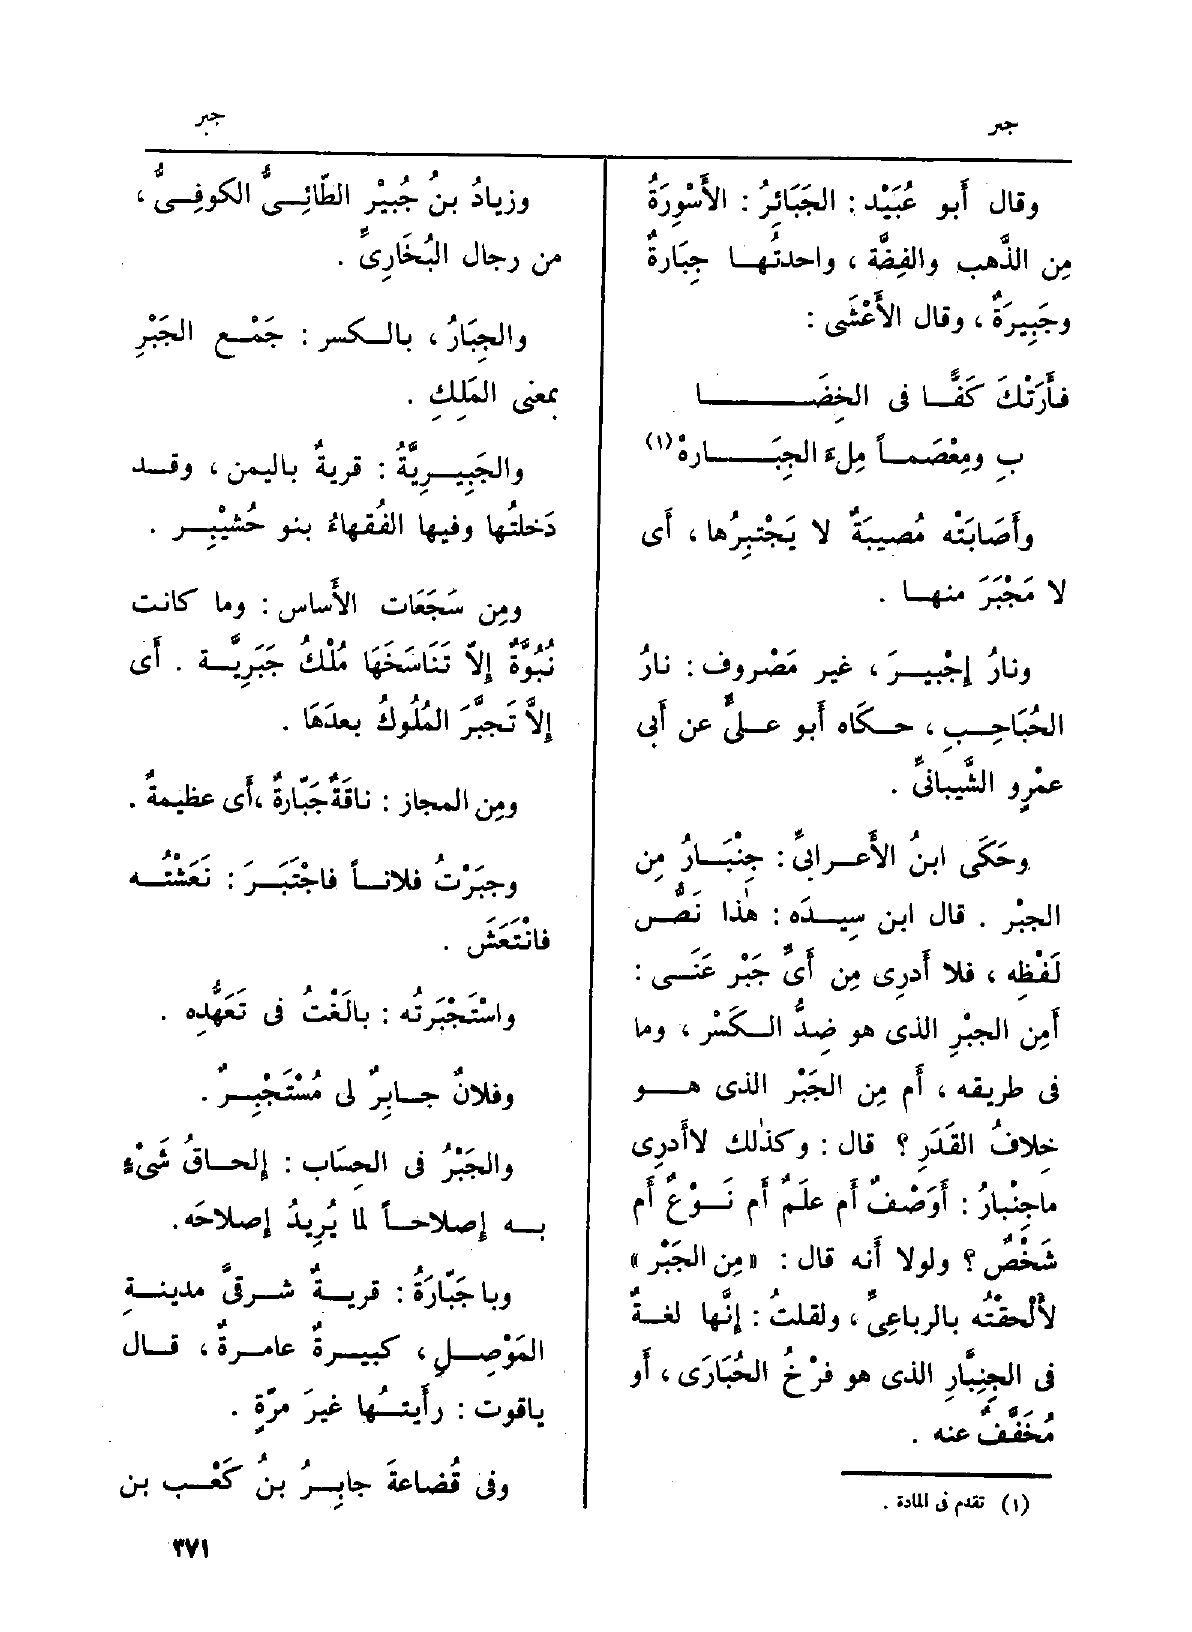 جبر
جبر
وقال أَبو عُبَيْد : الجَبَائِرُ : الأَسْوِرَةُ
مِن الذَّهبِ والفِضَّة ، واحدتُهـا جِبَارةٌ
وجَبِيرَةٌ ، وقال الأَعْشَى :
فأَرَتْكَ كَفًّــا فى الخِضَــــــــا
بِ ومِعْصَمـاً مِلءَ الجِبَــــارهْ (١)
وأَصَابَتْه مُصيبَةٌ لا يَجْتبِرُها ، أَى
لا مَجْبَرَ منهـا .
ونارُ إِجْبِيــرَ ، غير مَصْروف : نارُ
الحُبَاحِـبِ ، حـكَاه أَبو عـلىٍّ عن أَبى
عمْرٍو الشَّيبانىِّ .
وحَكَى ابنُ الأَعـرابىِّ : جِنْبَـارُ مِن
الجبْر . قال ابن سِيـدَه : هٰذا نَصُّـس
لَفْظِه ، فلا أَدرِى مِن أَىِّ جَبْر عَنَـى :
أَمِن الجبْرِ الذى هو ضِدُّ الـكَسْر ، وما
فى طريقه ، أَم مِن الجَبْر الذى هــو
خِلافُ القَدَرِ ؟ قال : وكذٰلك لاأَدرِى
ماجِنْبارُ : أَوَصْفٌ أَم علَمٌ أَم نَـوْعٌ أَم
شَخْصٌ ؟ ولولا أَنه قال : « مِن الجَبْر »
لأَلْحقْتُه بالرباعِىِّ ، ولقلتُ : إِنَّها لغـةٌ
فى الجِنِبَّارِ الذى هو فرْخُ الحُبَارَى ، أَو
مُخَفَّفٌ عنه .
(١) تقدم فى المادة .
وزيادُ بنُ جُبيْرٍ الطَّائِــىُّ الكوفِـىُّ ،
من رجال البُخَارِىِّ .
والجِبَارُ ، بالـكسر : جَمْـع الجَبْرِ
بمعنى المَلِكِ .
والجَبِيـرِيَّةُ : قريةٌ باليمن ، وقـد
دَخلتُها وفيها الفُقهاءُ بنو حُشَيْبِـر .
ومِن سَجَعَات الأَساس : وما كانت
نُبُوَّةٌ إِلاّ تَنَاسَخَهَا مُلْكُ جَبَرِيَّـة . أَى
إِلاَّ تَجبَّرَ المُلُوكُ بعدَهَا .
ومِن المجاز : ناقةٌ جَبّارةٌ ،أَى عظيمةٌ .
وجبَرْتُ فلانـاً فاجْتَبَـرَ : نَعَشْتُـه
فانْتَعَشَ .
واسْتَجْبَرتُه : بالَغْتُ فى تَعَهُّدِه .
وفلانٌ جـابِرٌ لى مُسْتَجْبِـرٌ .
والجَبْرُ فى الحِسَاب : إلحـاقُ شَىْءٍ
بـه إِصلاحـاً لما يُرِيدُ إِصلاحَه .
وباجَبّارَةُ : قريـةٌ شـرقىَّ مدينـةِ
المَوْصِـلِ ، كبيـرةٌ عامـرةٌ ، قـال
ياقوت : رأَيتـُها غيرَ مرّةٍ .
وفى قُضاعةَ جابِـرُ بنُ كَعْـبِ بن
٣٧١